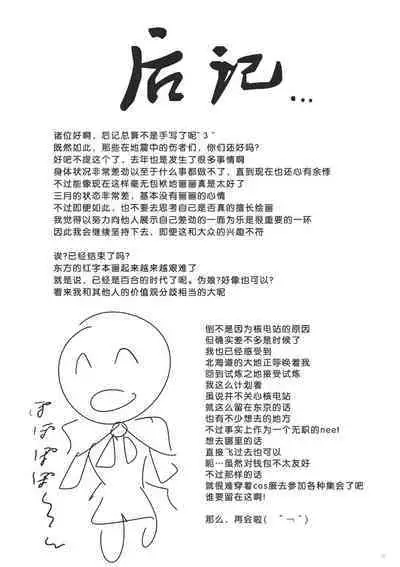 后记...
诸位好啊，后记总算不是手写了呢~3~
既然如此，那些在地震中的伤者们，你们还好吗？
好吧不提这个了，去年也是发生了很多事情啊
身体状况非常差劲以至于什么事都做不了，直到现在也还心有余悸
不过能像现在这样毫无包袱地画画真是太好了
三月的状态非常差、基本没有画画的心情
不过即便如此，也不要去思考自己是否真的擅长绘画
我觉得以努力向他人展示自己差劲的一面为乐是很重要的一环
因此我会继续坚持下去、即便这和大众的兴趣不符
诶?已经结束了吗?
东方的红字本画起来越来越艰难了
就是说，已经是百合的时代了呢。伪娘?好像也可以?
看来我和其他人的价值观分歧相当的大呢
倒不是因为核电站的原因
但确实差不多是时候了
我也已经感受到
北海道的大地正呼唤着我
回到试炼之地接受试炼
我这么计划着
虽说并不关心核电站
就这么留在东京的话
也有不少想去的地方
不过事实上作为一个无职的neet
想去哪里的话
直接飞过去也可以
呃…虽然对钱包不太友好
不过那样的话
就很难穿着cos服去参加各种集会了吧
谁要留在这啊!
那么、再会啦( ˘﹃˘ )
ぽぽぽぽ